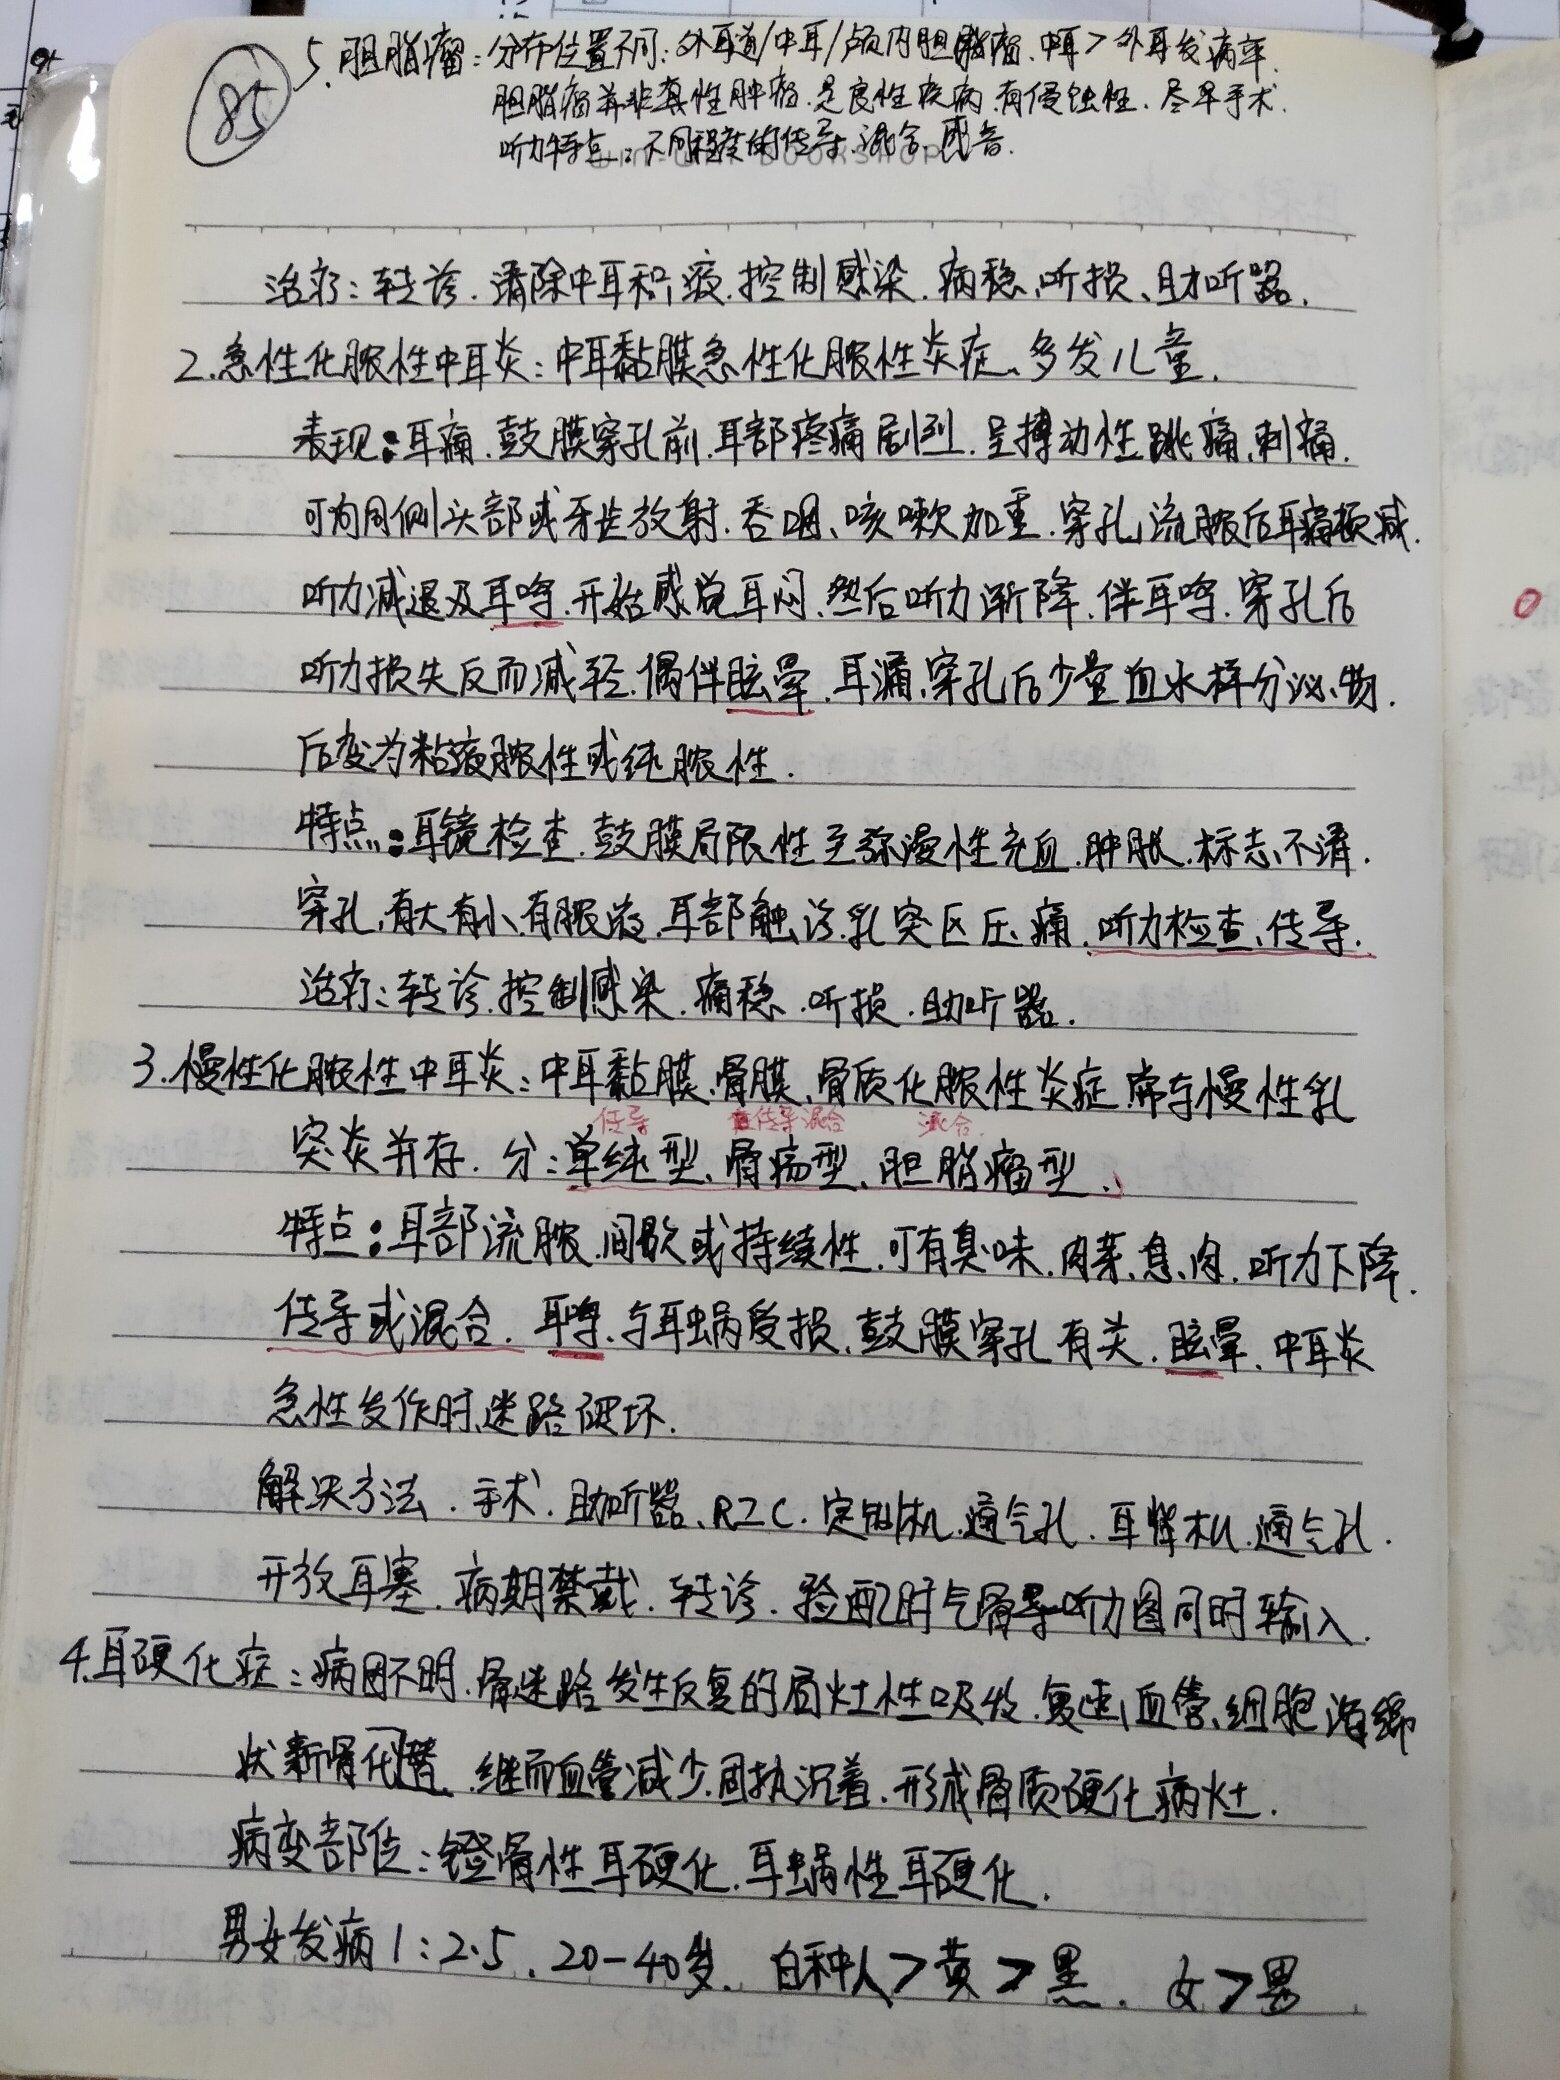 85
5. 胆脂瘤：分布位置不同：外耳道/中耳/颅内胆脂瘤．中耳＞外耳发病率．
胆脂瘤并非真性肿瘤．是良性疾病．有侵蚀性．尽早手术．
听力特点：不同程度的传导．混合．感音．
BOOKSHOP
治疗：转诊．清除中耳积液．控制感染．病稳、听损、助听器．
2.急性化脓性中耳炎：中耳黏膜急性化脓性炎症、多发儿童．
表现：耳痛．鼓膜穿孔前．耳部疼痛剧烈．呈搏动性跳痛、刺痛．
可向同侧头部或牙齿放射．吞咽、咳嗽加重．穿孔、流脓后耳痛顿减．
听力减退及耳鸣．开始感觉耳闷．然后听力渐降．伴耳鸣．穿孔后
听力损失反而减轻．偶伴眩晕．耳漏．穿孔后少量血水样分泌物．
后变为粘液脓性或纯脓性．
特点：耳镜检查．鼓膜局限性至弥漫性充血．肿胀．标志不清．
穿孔．有大有小．有脓液．耳部触诊．乳突区压痛．听力检查、传导．
治疗：转诊．控制感染．病稳．听损．助听器．
3.慢性化脓性中耳炎：中耳黏膜、骨膜、骨质化脓性炎症．常与慢性乳
传导 传导混合 混合．
突炎并存．分：单纯型、骨疡型、胆脂瘤型．
特点：耳部流脓．间歇或持续性．可有臭味．肉芽、息肉．听力下降．
传导或混合．耳鸣．与耳蜗受损．鼓膜穿孔有关．眩晕．中耳炎
急性发作时．迷路破坏．
解决方法．手术．助听器、RIC．定制机．通气孔．耳背机．通气孔．
开放耳塞．病期禁戴．转诊．验配时气骨导听力图同时输入．
4.耳硬化症：病因不明．骨迷路发生反复的局灶性吸收．复以血管、细胞海绵
状新骨代替．继而血管减少．固执沉着．形成骨质硬化病灶．
病变部位：镫骨性耳硬化．耳蜗性耳硬化．
男女发病1：2.5．20－40岁．白种人＞黄＞黑．女＞男